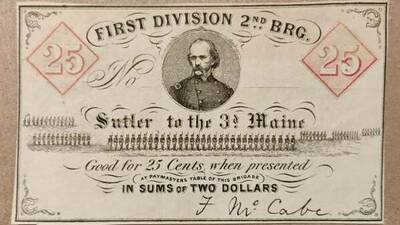 FIRST DIVISION 2ND BRG.
25 25
No
Sutler to the 3d Maine
Good for 25 Cents, when presented
AT PAYMASTERS TABLE OF THIS BRIGADE
IN SUMS OF TWO DOLLARS
F McCabe